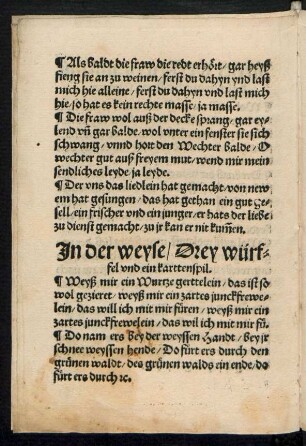 ¶ Als baldt die fraw die redt erhört/ gar heyß
fieng sie an zu weinen/ ferst du dahyn vnd last
mich hie alleine/ ferst du dahyn vnd last mich
hie/ so hat es kein rechte masse/ ja masse.
¶ Die fraw wol auß der decke sprang/ gar ey-
lend vñ gar balde. wol vnter ein fenster sie sich
schwang/ vnnd hört den Wechter balde/ O
wechter gut auß freyem mut/ wend mir mein
sendliches leyde ja leyde.
¶ Der vns das liedlein hat gemacht/ von new
em hat gesungen/ das hat gethan ein gut Ge-
sell/ ein frischer vnd ein junger/ er hats der liebe
zu dienst gemacht/ zu jr kan er nit kum̃en.
In der weyse/ Drey würf-
fel vnd ein karttenspil.
¶ Weyß mir ein Wurtze gerttelein/ das ist so
wol gezieret/ weyß mir ein zartes junckfrewe-
lein/ das will ich mit mir füren/ weyß mir ein
zartes junckfrewelein/ das wil ich mit mir fü.
¶ Do nam ers bey der weyssen Handt/ bey jr
schnee weyssen hende/ Do fürt ers durch den
grünen waldt/ des grünen walds ein ende/ do
fürt ers durch ꝛc.